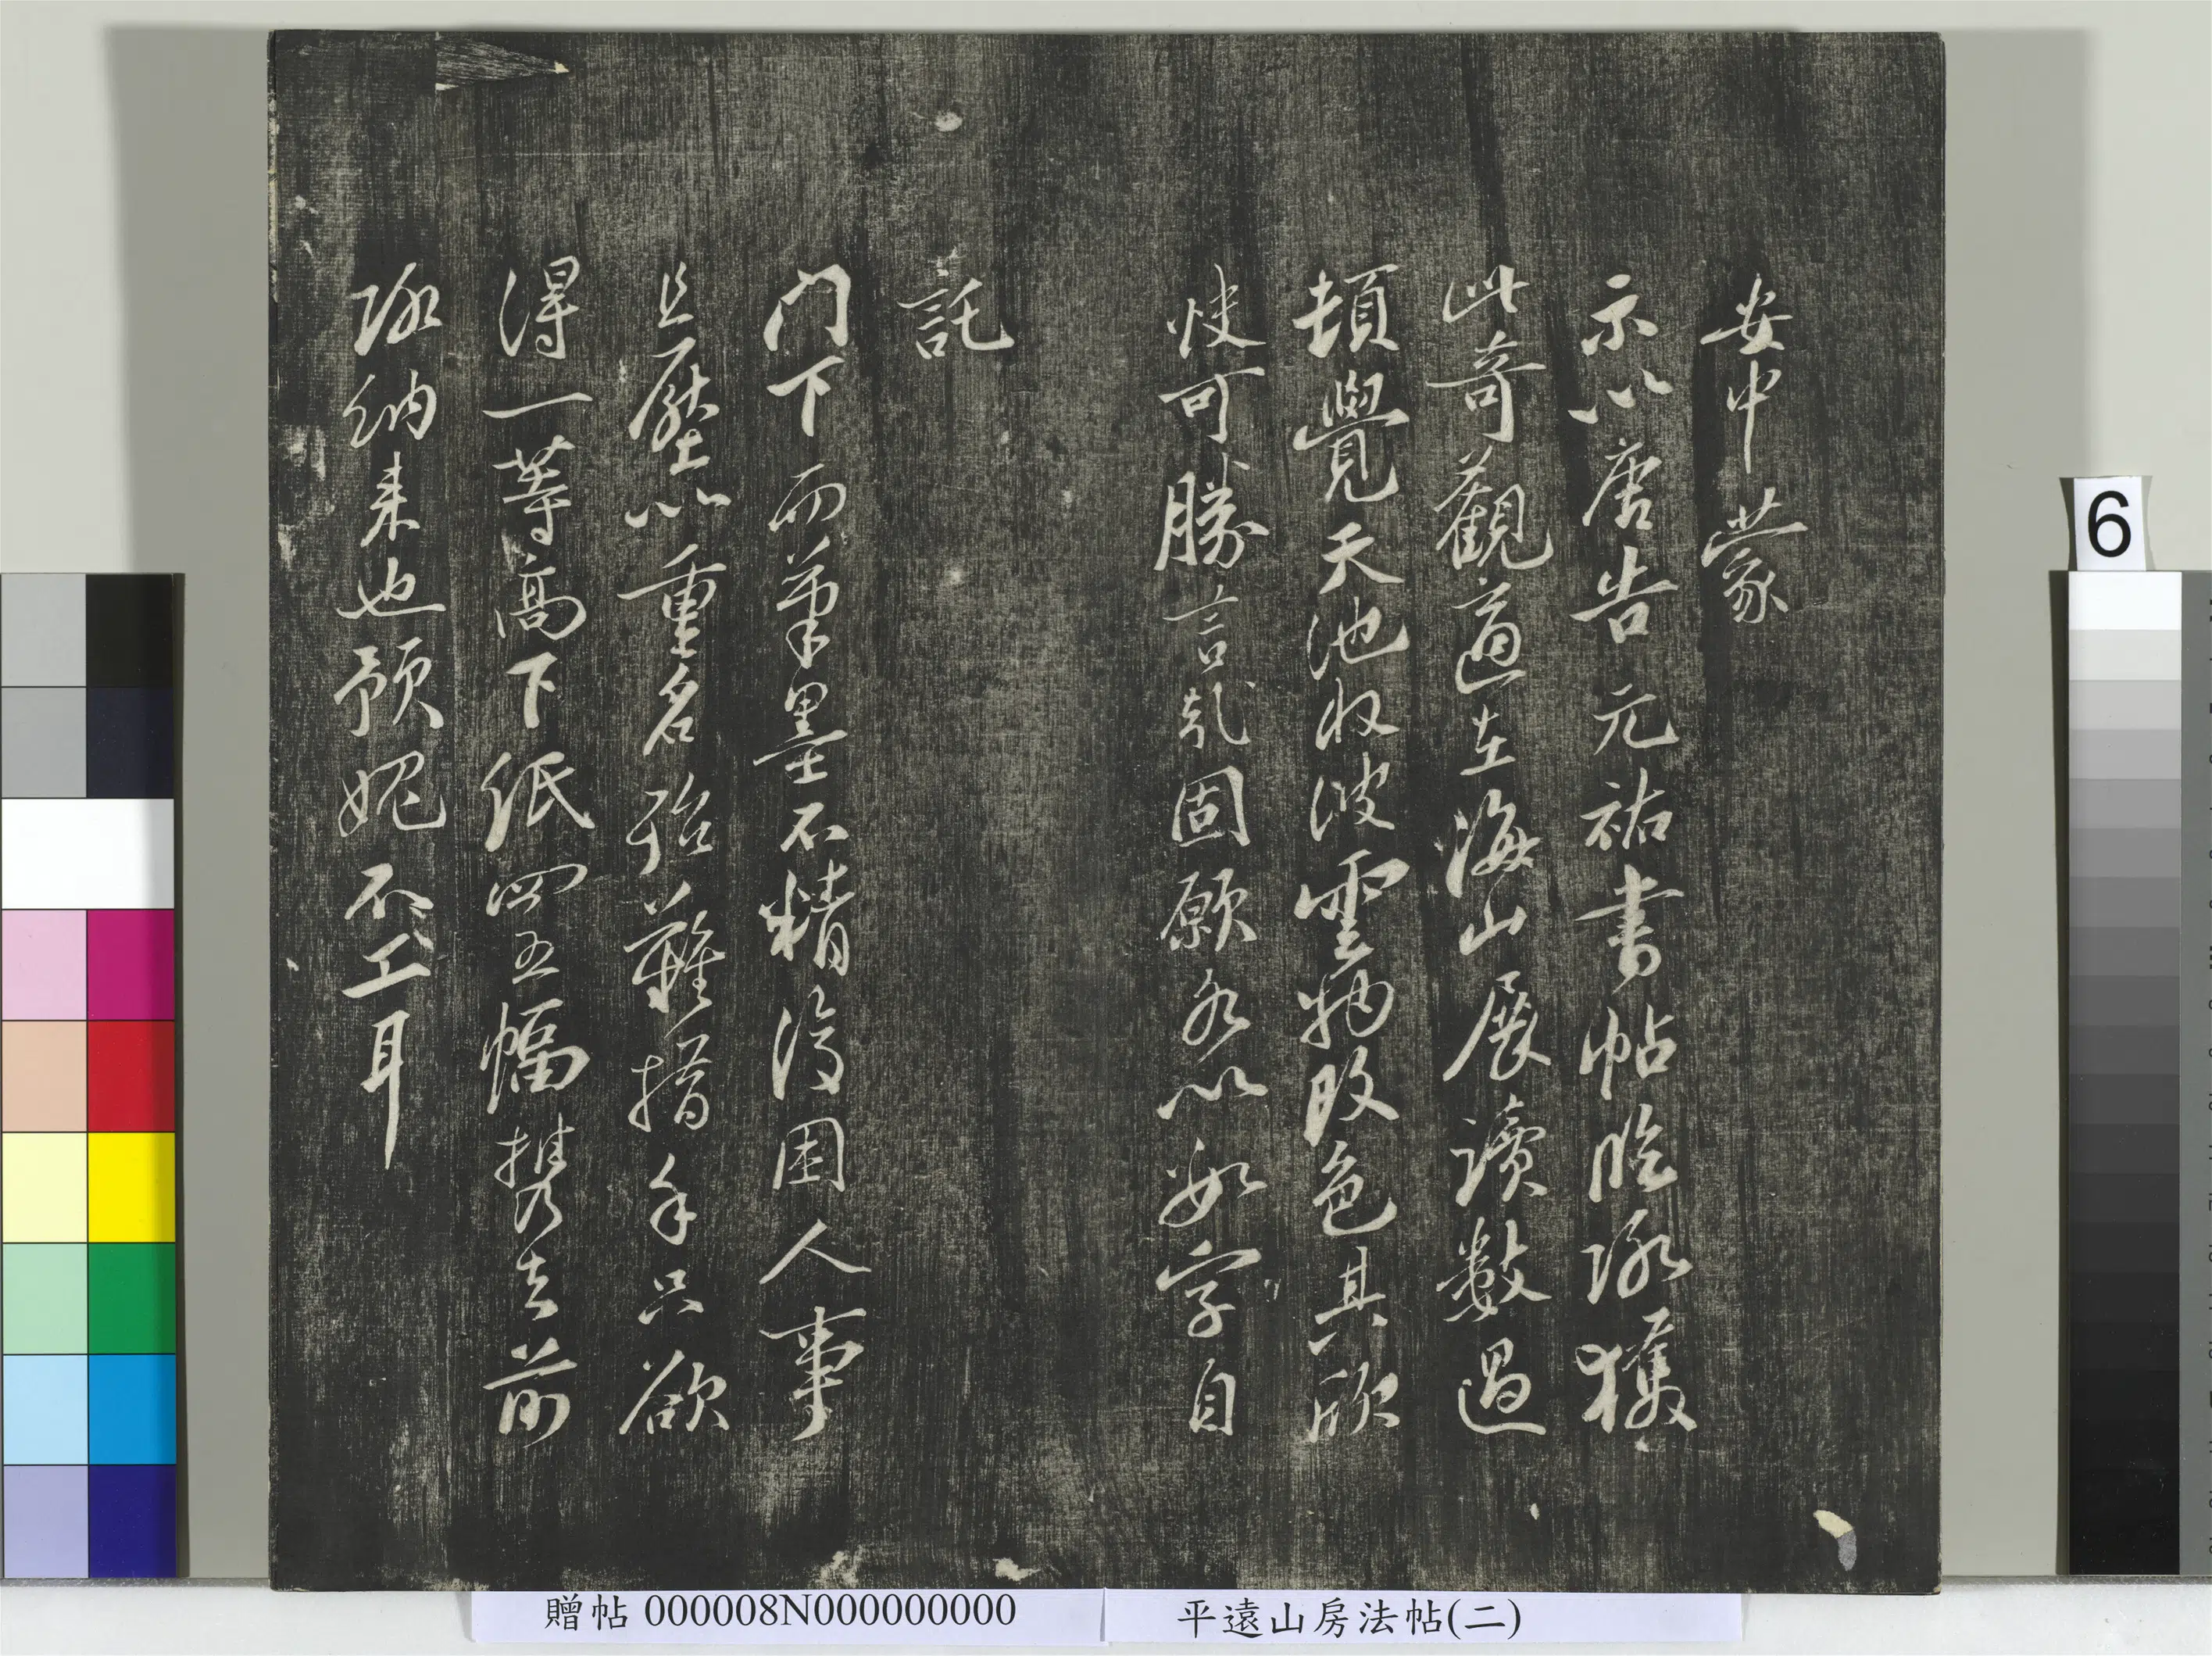 安中蒙
示以唐告元祐書帖臨涂獲
此奇觀適在海山展讀數過
頓覺天池收波雲物改色其欣
快可勝言哉固願以字自
託
門下而筆墨不精復困人事
且壓以重名殆難措手只欲
得一等高下紙四五幅携去前
涂納来也預媿不工耳
6
贈帖 000008N000000000
平遠山房法帖(二)